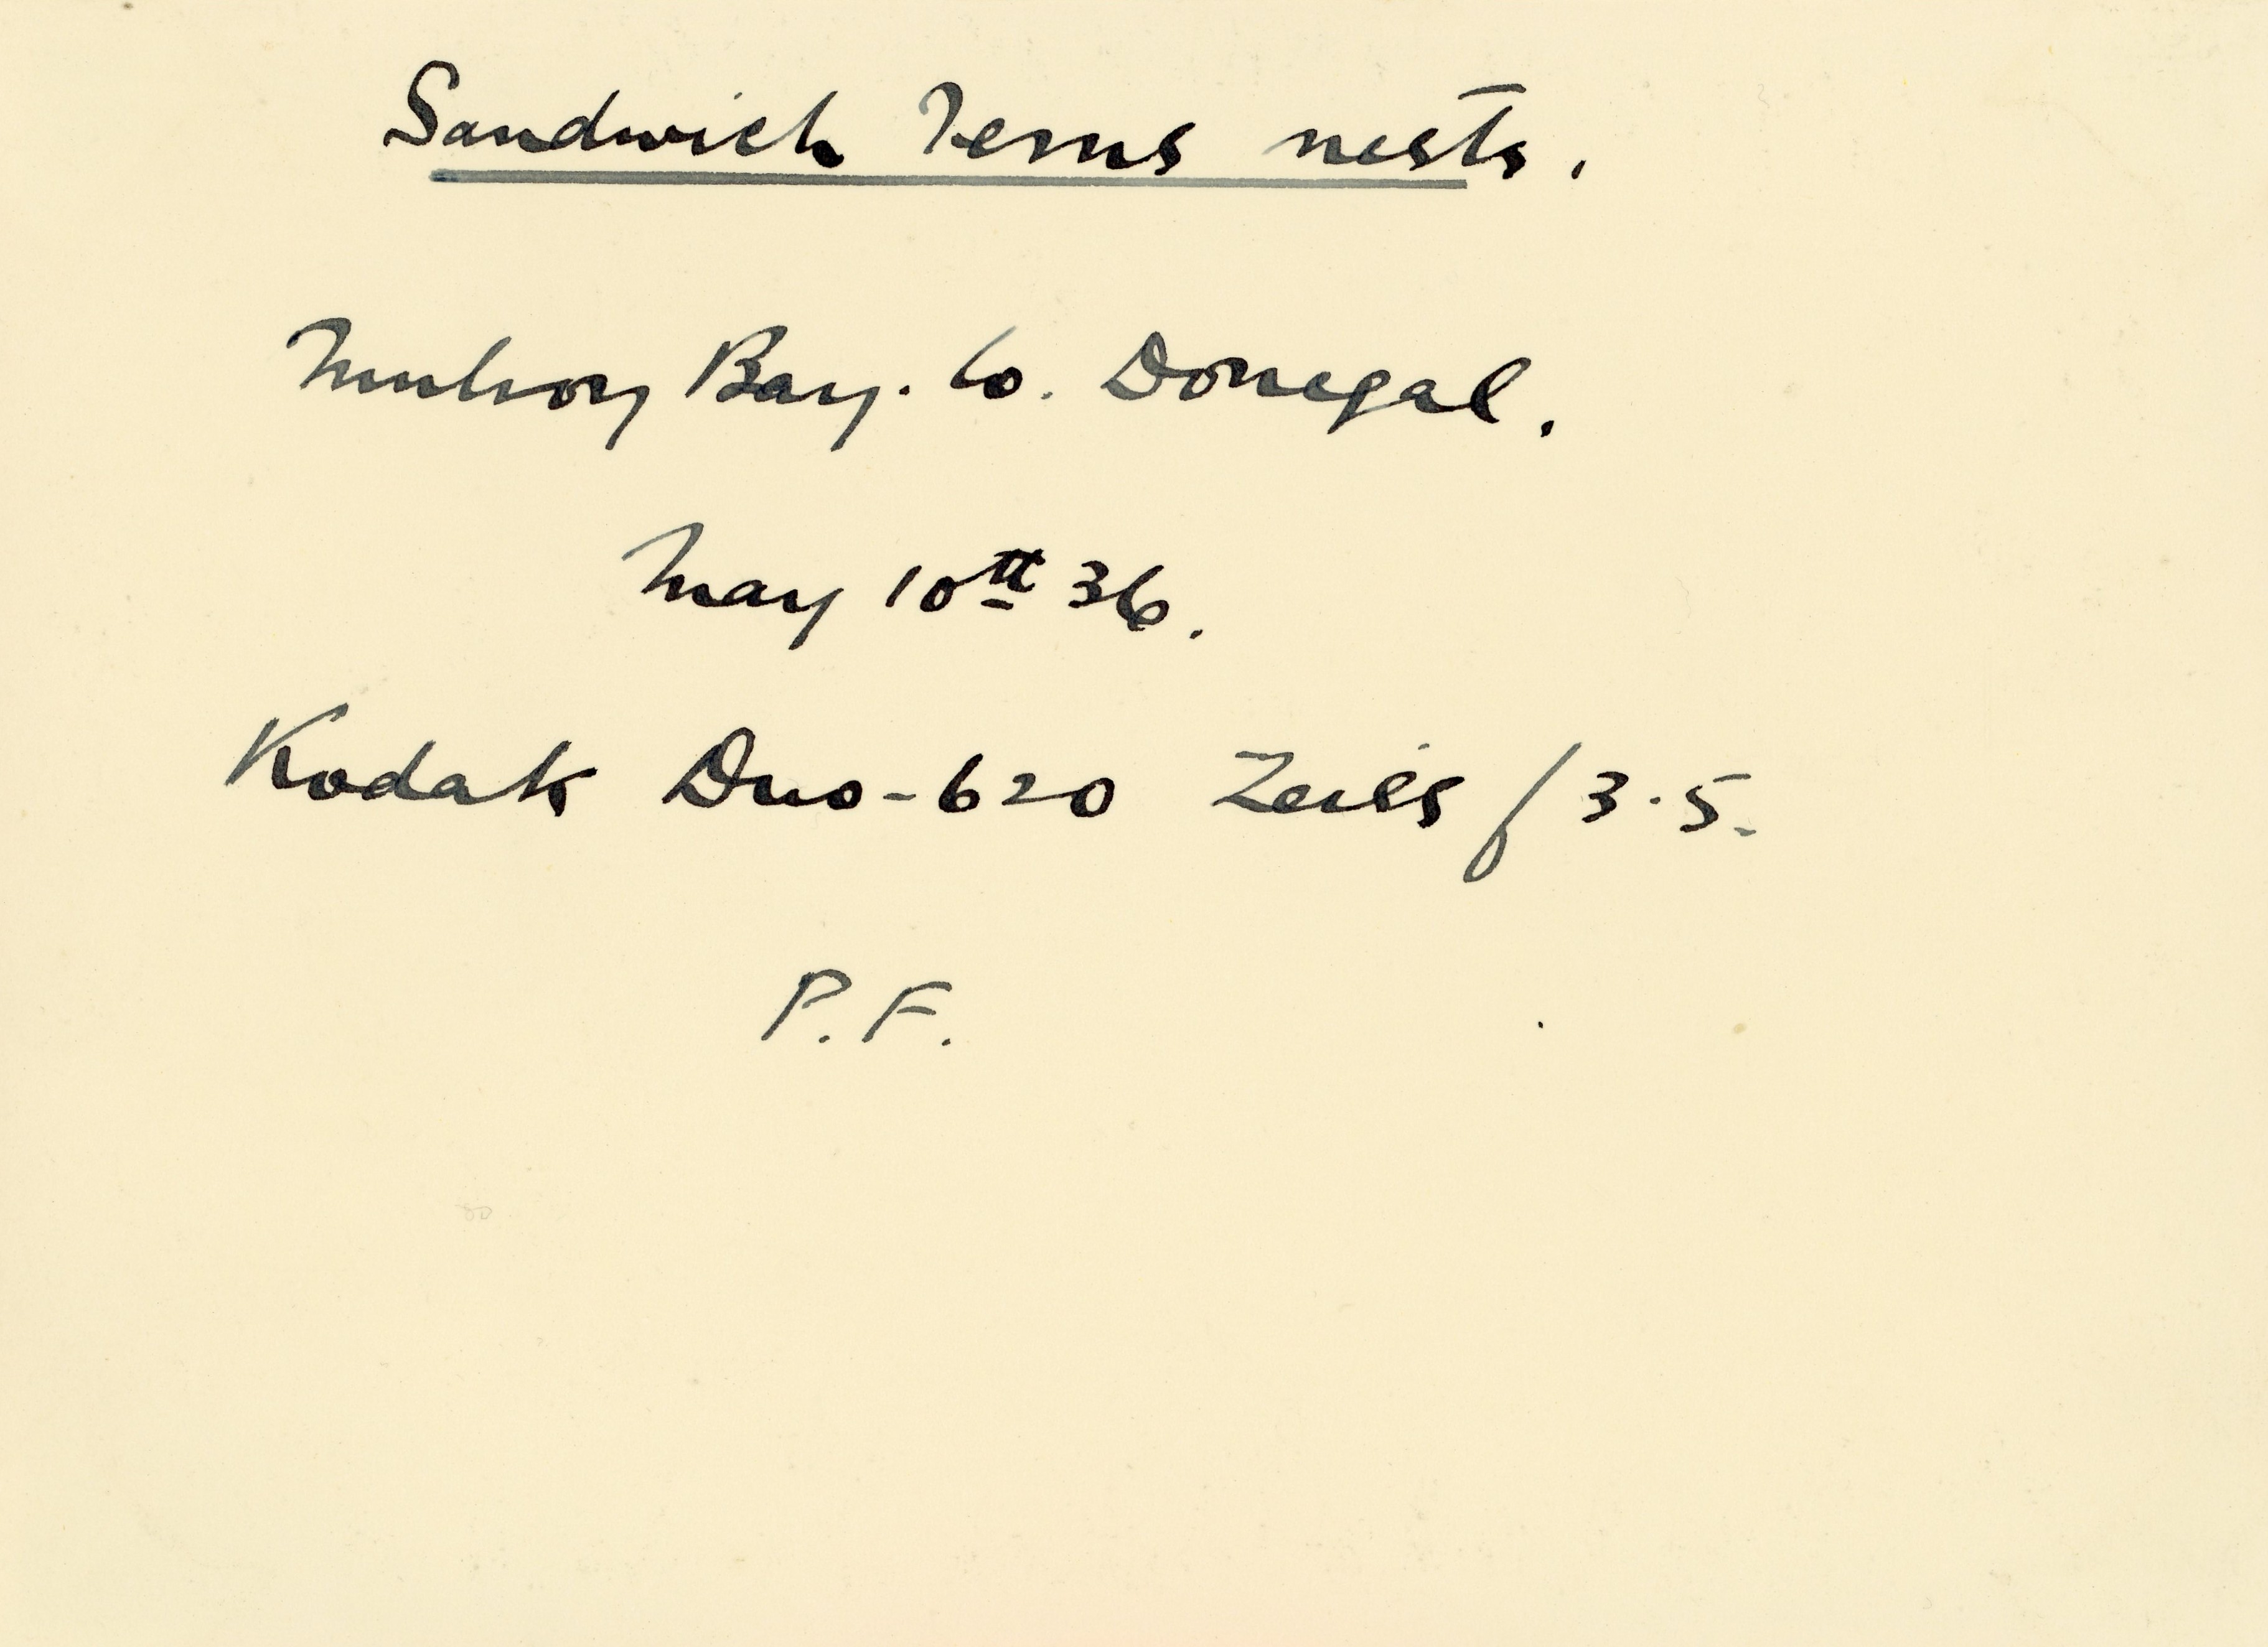 Sandwich Terns nests.
Mulroy Bay. Co. Donegal.
May 10th 36.
Kodak Duo-620 Zeiss f/3.5.
P.F.